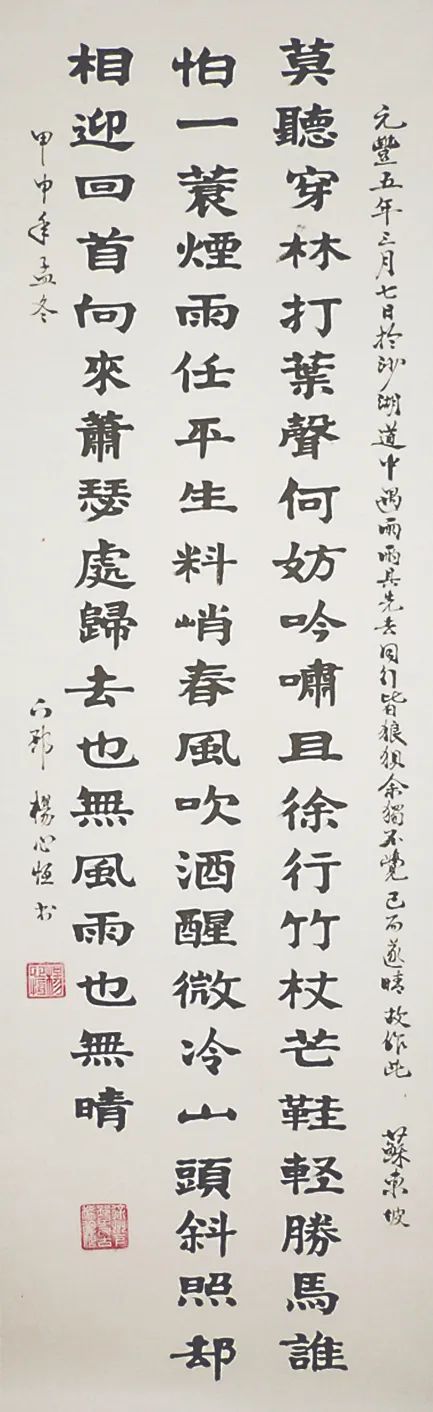 元豐五年三月七日於沙湖道中遇雨雨具先去同行皆狼狽余獨不覺已而遂晴故作此 蘇東坡
莫聽穿林打葉聲何妨吟嘯且徐行竹杖芒鞋軽勝馬誰
怕一蓑煙雨任平生料峭春風吹酒醒微冷山頭斜照却
相迎回首向來蕭瑟處歸去也無風雨也無晴
甲申年孟冬 下邳 楊心恆书